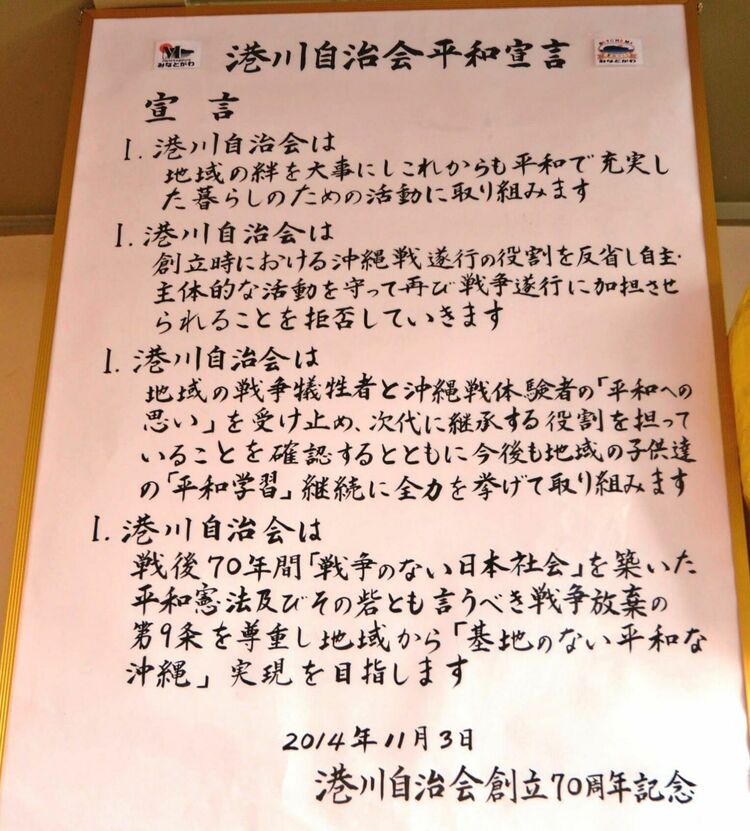 港川自治会平和宣言
みなとがわ
みなとがわ
宣言
1. 港川自治会は
地域の絆を大事にしこれからも平和で充実し
た暮らしのための活動に取り組みます
1. 港川自治会は
創立時における沖縄戦遂行の役割を反省し自主・
主体的な活動を守って再び戦争遂行に加担させ
られることを拒否していきます
1. 港川自治会は
地域の戦争犠牲者と沖縄戦体験者の「平和への
思い」を受け止め、次代に継承する役割を担って
いることを確認するとともに今後も地域の子供達
の「平和学習」継続に全力を挙げて取り組みます
1. 港川自治会は
戦後70年間「戦争のない日本社会」を築いた
平和憲法及びその砦とも言うべき戦争放棄の
第9条を尊重し地域から「基地のない平和な
沖縄」実現を目指します
2014年11月3日
港川自治会創立70周年記念